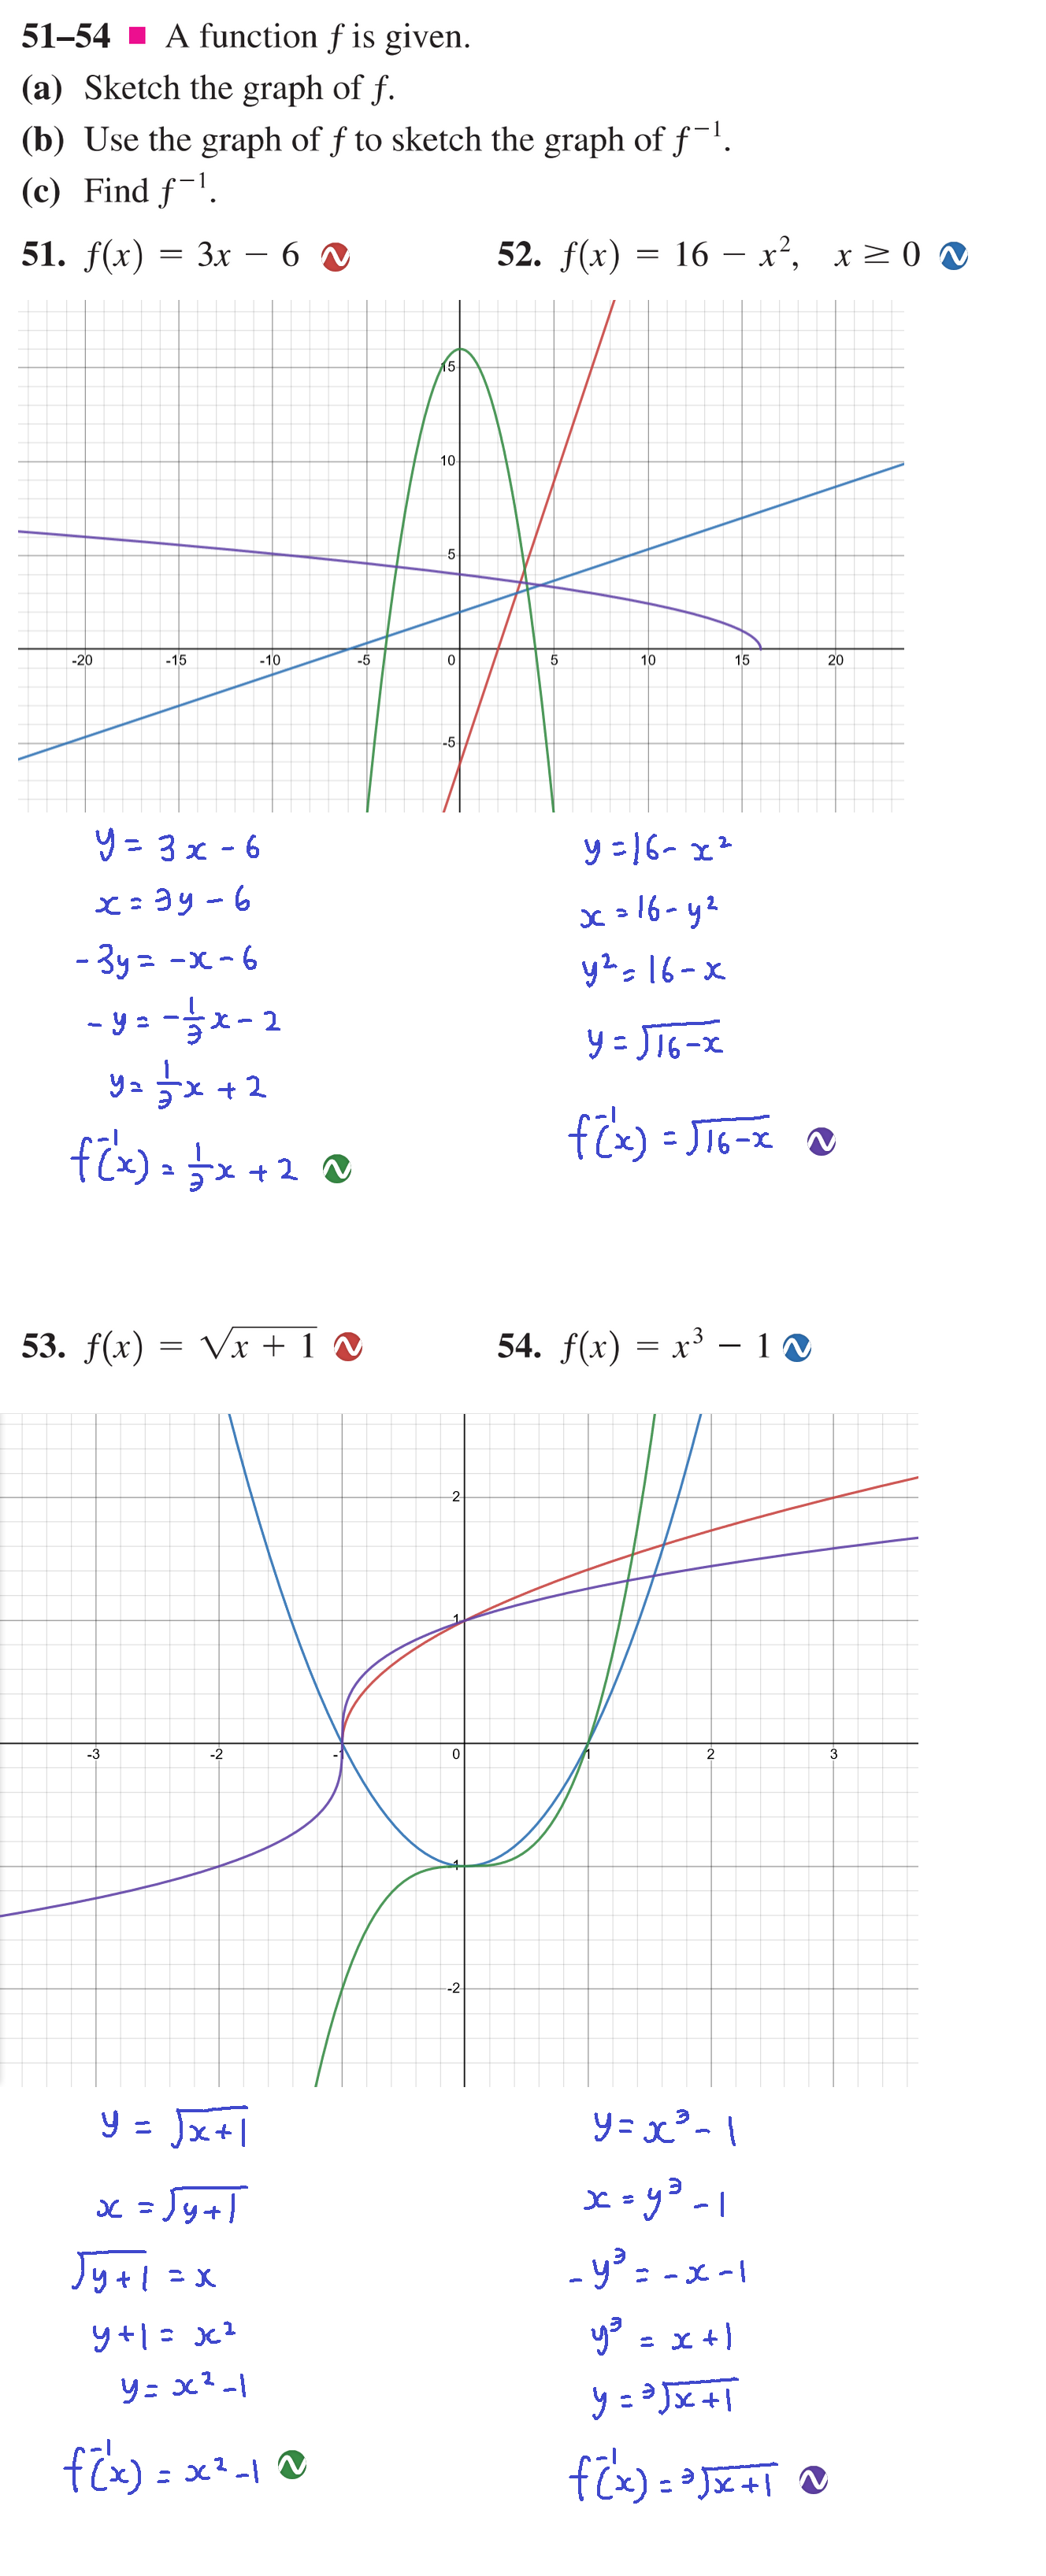 51–54 ■ A function f is given.
(a) Sketch the graph of f.
(b) Use the graph of f to sketch the graph of f⁻¹.
(c) Find f⁻¹.
51. f(x) = 3x − 6
52. f(x) = 16 − x², x ≥ 0
15
10
5
-20 -15 -10 -5 0 5 10 15 20
-5
y = 3x - 6
x = 3y - 6
-3y = -x - 6
-y = -1/3 x - 2
y = 1/3 x + 2
f⁻¹(x) = 1/3 x + 2
y = 16 - x²
x = 16 - y²
y² = 16 - x
y = √(16-x)
f⁻¹(x) = √(16-x)
53. f(x) = √(x + 1)
54. f(x) = x³ − 1
2
1
-3 -2 -1 0 1 2 3
-1
-2
y = √(x+1)
x = √(y+1)
√(y+1) = x
y+1 = x²
y = x² - 1
f⁻¹(x) = x² - 1
y = x³ - 1
x = y³ - 1
-y³ = -x - 1
y³ = x + 1
y = ³√(x+1)
f⁻¹(x) = ³√(x+1)